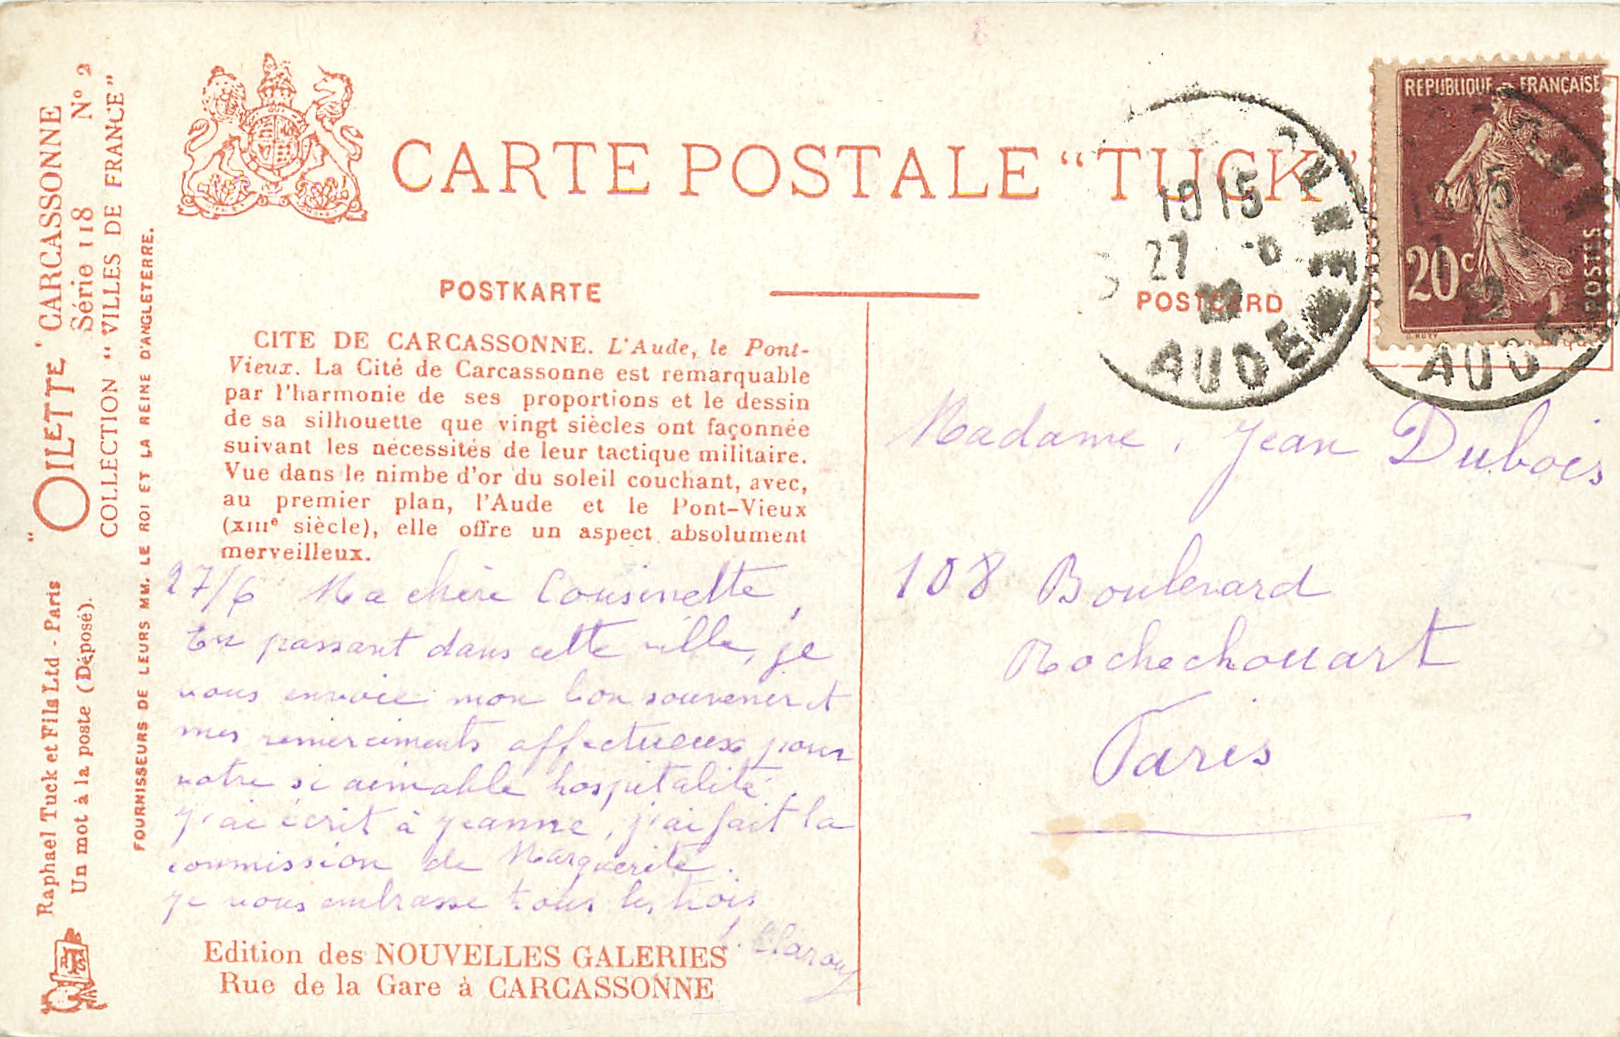 CARTE POSTALE "TUCK"
POSTKARTE
POSTCARD
REPUBLIQUE FRANÇAISE
20c
POSTES
1915
27 6
AUDE
1915
AUDE
"OILETTE" CARCASSONNE
Série 118 Nº 2
COLLECTION "VILLES DE FRANCE"
FOURNISSEURS DE LEURS MM. LE ROI ET LA REINE D'ANGLETERRE.
Raphael Tuck et Fils Ltd - Paris
Un mot à la poste (Déposé).
CITE DE CARCASSONNE. L'Aude, le Pont-
Vieux. La Cité de Carcassonne est remarquable
par l'harmonie de ses proportions et le dessin
de sa silhouette que vingt siècles ont façonnée
suivant les nécessités de leur tactique militaire.
Vue dans le nimbe d'or du soleil couchant, avec,
au premier plan, l'Aude et le Pont-Vieux
(XIIIe siècle), elle offre un aspect absolument
merveilleux.
27/6 Ma chère Cousinette,
En passant dans cette ville, je
vous envoie mon bon souvenir et
mes remerciments affectueux pour
votre si aimable hospitalité.
J'ai écrit à Jeanne, j'ai fait la
commission de Marguerite.
Je vous embrasse tous les trois
Edition des NOUVELLES GALERIES
Rue de la Gare à CARCASSONNE
Madame Jean Dubois
108 Boulevard
Rochechouart
Paris